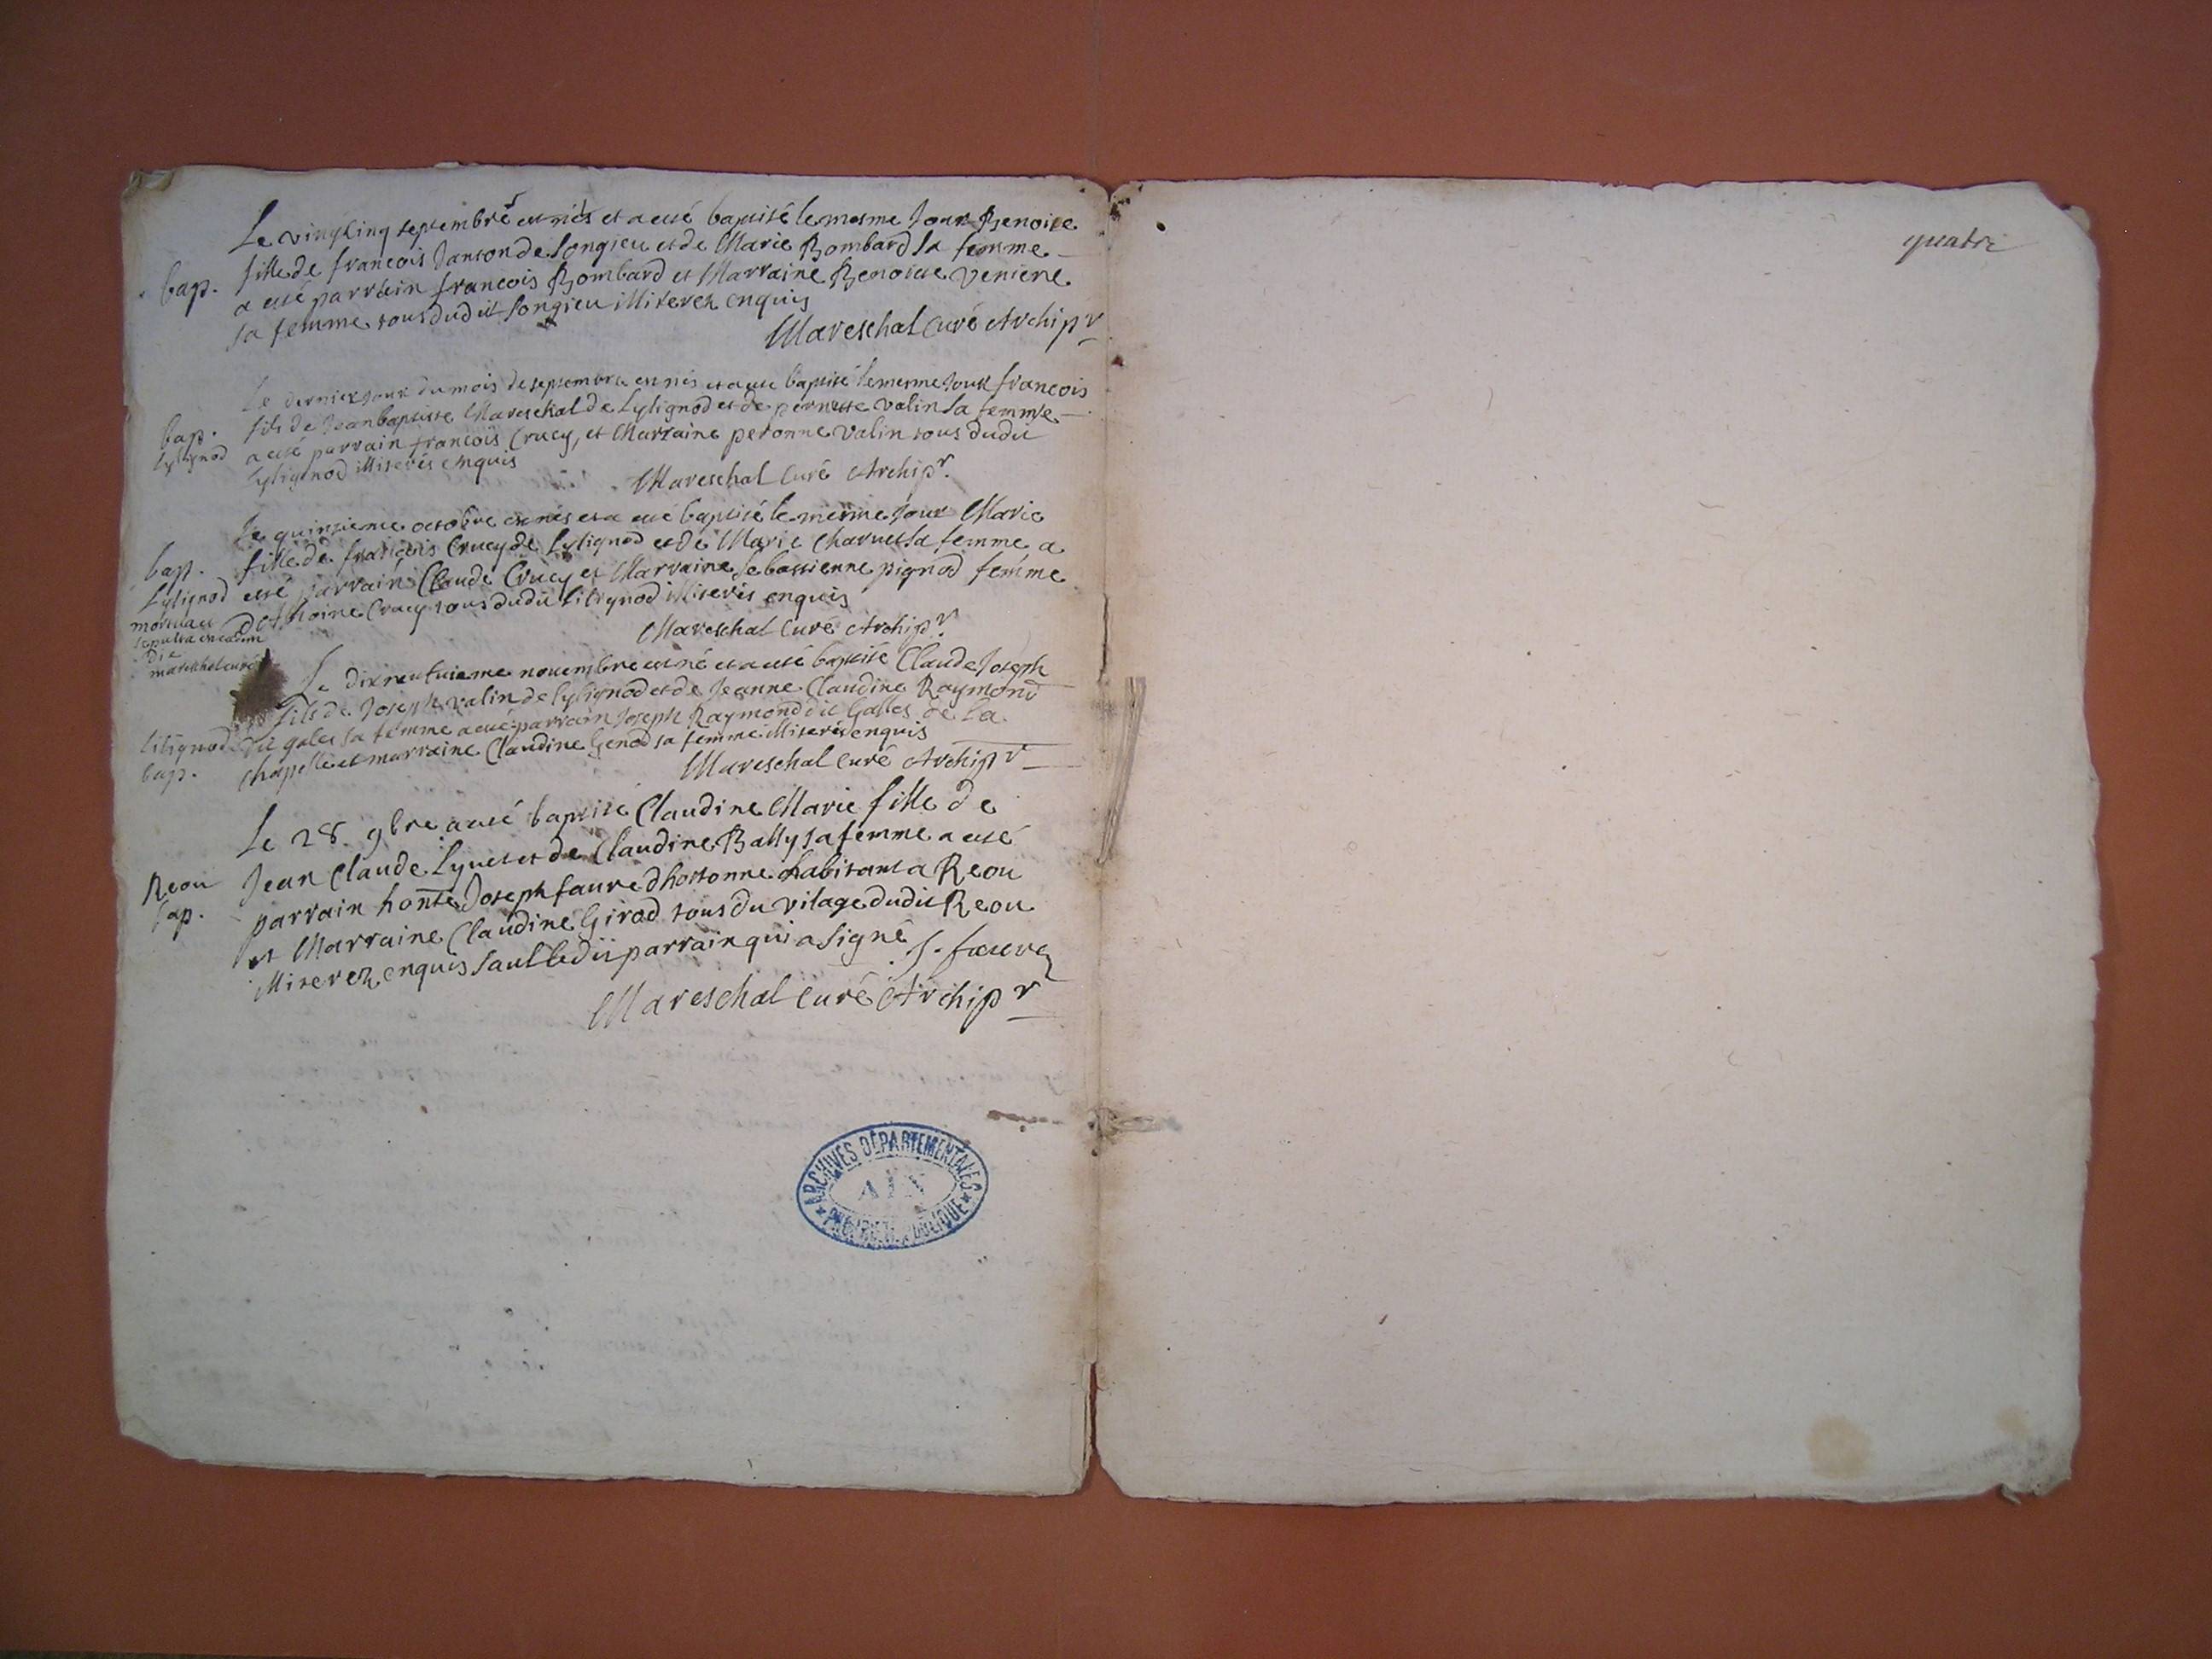 Le vingt cinq septembre est nés et a esté baptisé le mesme Jour Benoite
bap. fille de francois Janton de Songieu et de Marie Bombard sa femme
a esté parrain francois Bombard et Marraine Benoite Veniere
sa femme tous dudit Songieu illiterez enquis
Mareschal Curé Archipr
Le dernier Jour du mois de septembre est nés et a esté baptisé le mesme Jour francois
bap. fils de Jean baptiste Mareschal de Lylignod et de pernette valin sa femme
Lylignod a esté parrain francois Crucy, et Marraine peronne Valin tous dudit
Lylignod illiterés enquis
Mareschal Curé Archipr.
Le quinzieme octobre est nés et a esté baptisé le mesme Jour Marie
bap. fille de francois Crucy de Lylignod et de Marie Charvet sa femme a
Lylignod esté parrain Claude Crucy et Marraine Sebastienne pignod femme
mortua et dAthoine Crucy tous dudit Lilignod illiterés enquis
sepulta in eadem
die
mareschal curé
Mareschal Curé Archipr.
Le dix neufvieme novembre est né et a esté baptisé Claude Joseph
fils de Joseph valin de lylignod et de Jeanne Claudine Raymond
lilignod dit gales sa femme a esté parrain Joseph Raymond dit Galles de la
bap. Chapelle et marraine Claudine Genod sa femme illiterés enquis
Mareschal Curé Archipr
Le 28. 9bre a esté baptisé Claudine Marie fille de
Reou Jean Claude Lyvet et de Claudine Bally sa femme a esté
bap. parrain honte Joseph faure dhostonne habitant a Reou
et Marraine Claudine Girod tous du vilage dudit Reou
illiterez enquis sauf ledit parrain qui a signé J. faure
Mareschal Curé Archipr
ARCHIVES DÉPARTEMENTALES
AIN
PROPRIÉTÉ PUBLIQUE
quatre